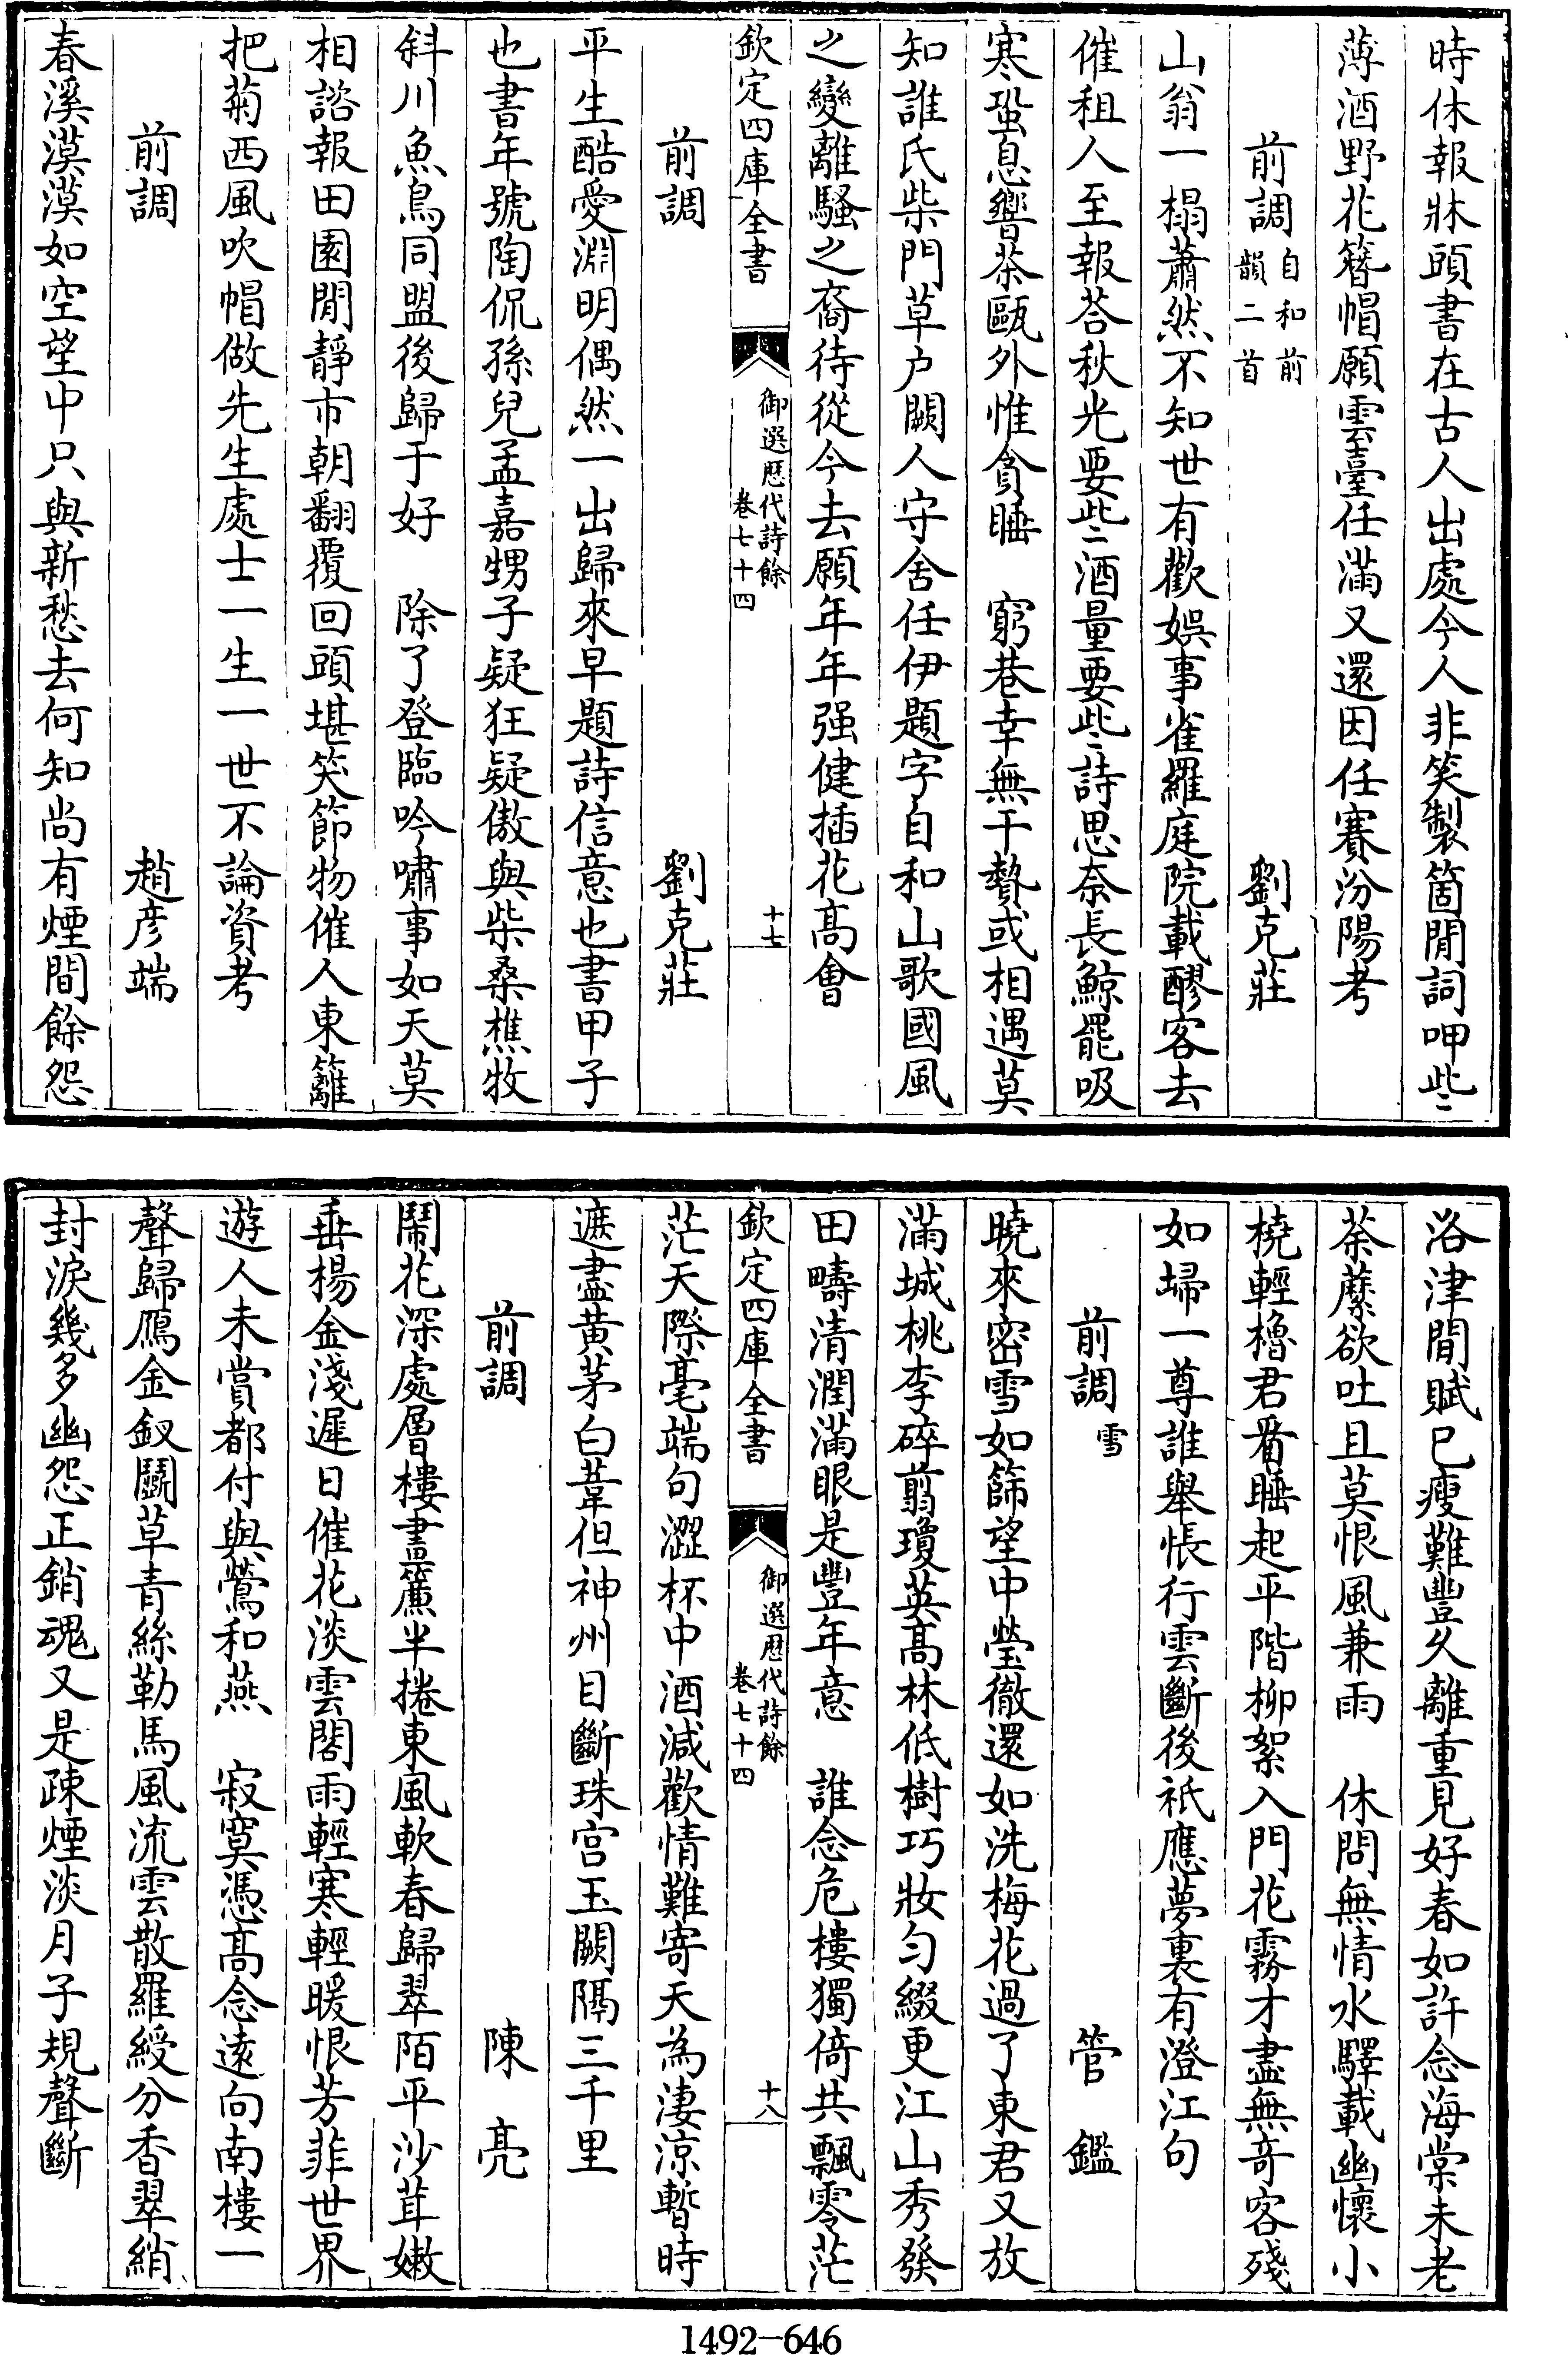 時休報牀頭書在古人出處今人非笑製箇閒詞呷些些
薄酒野花簪帽願雲臺任滿又還因任賽汾陽考
前調自和前韻二首 劉克莊
山翁一榻蕭然不知世有歡娯事雀羅庭院載醪客去
催租人至報答秋光要些些酒量要些些詩思奈長鯨罷吸
寒蛩息響茶甌外惟貪睡 窮巷幸無干贄或相遇莫
知誰氏柴門草户闕人守舍任伊題字自和山歌國風
之變離騷之裔待從今去願年年强健插花髙會
欽定四庫全書 御選歴代詩餘 卷七十四 十七
前調 劉克莊
平生酷愛淵明偶然一出歸來早題詩信意也書甲子
也書年號陶侃孫兒孟嘉甥子疑狂疑傲與柴桑樵牧
斜川魚鳥同盟後歸于好 除了登臨吟嘯事如天莫
相諮報田園閒靜市朝翻覆回頭堪笑節物催人東籬
把菊西風吹帽做先生處士一生一世不論資考
前調 趙彦端
春溪漠漠如空望中只與新愁去何知尚有煙間餘怨
洛津閒賦已瘦難豐久離重見好春如許念海棠未老
荼蘼欲吐且莫恨風兼雨 休問無情水驛載幽懷小
橈輕櫓君看睡起平階柳絮入門花霧才盡無竒客殘
如埽一尊誰舉悵行雲斷後祇應夢裏有澄江句
前調雪 管鑑
曉來密雪如篩望中瑩徹還如洗梅花過了東君又放
滿城桃李碎翦瓊英髙林低樹巧妝匀綴更江山秀發
田疇清潤滿眼是豐年意 誰念危樓獨倚共飄零茫
欽定四庫全書 御選歴代詩餘 卷七十四 十八
茫天際毫端句澀杯中酒減歡情難寄天為淒涼暫時
遮盡黄茅白葦但神州目斷珠宫玉闕隔三千里
前調 陳亮
鬧花深處層樓畫簾半捲東風軟春歸翠陌平沙茸嫩
垂楊金淺遲日催花淡雲閣雨輕寒輕暖恨芳菲世界
遊人未賞都付與鶯和燕 寂寞憑髙念遠向南樓一
聲歸鴈金釵鬬草青絲勒馬風流雲散羅綬分香翠綃
封淚幾多幽怨正銷魂又是疎煙淡月子規聲斷
1492-646